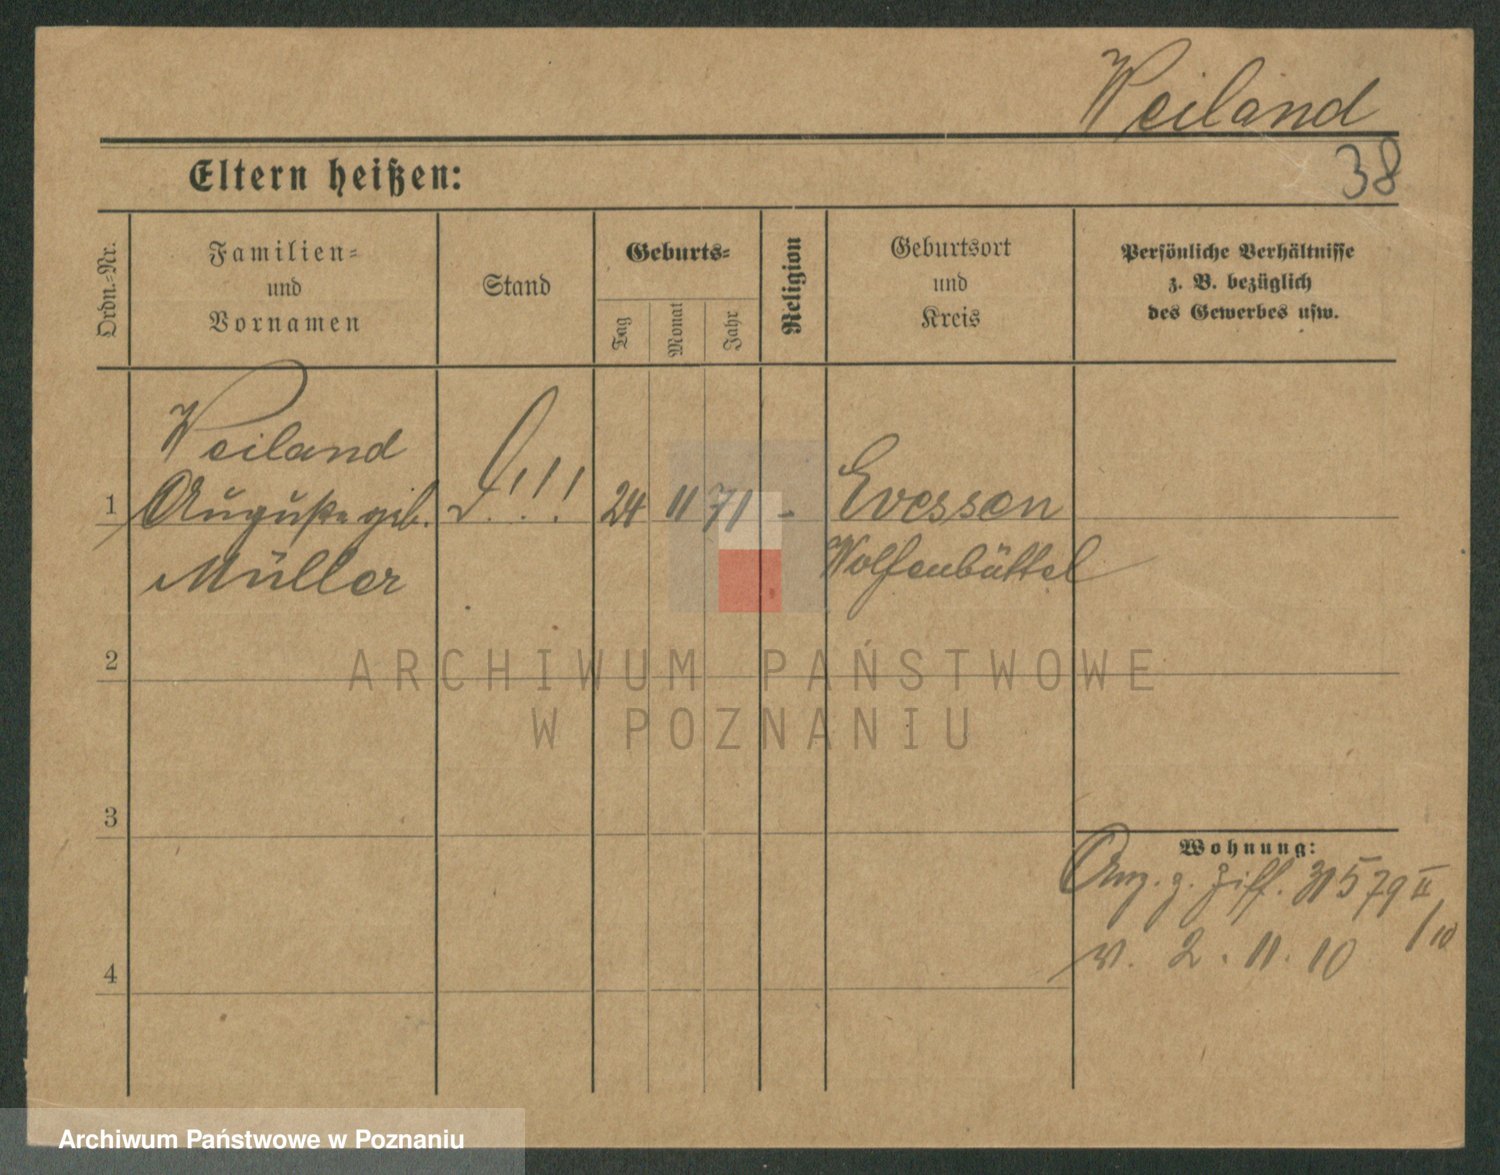 Weiland
38
Eltern heißen:
Ordn.-Nr.
Familien-
und
Vornamen
Stand
Geburts-
Tag
Monat
Jahr
Religion
Geburtsort
und
Kreis
Persönliche Verhältnisse
z. B. bezüglich
des Gewerbes usw.
Weiland
1 Auguste geb. !!! 24 11 71 - Evessen
Müller Wolfenbüttel
2
ARCHIWUM PAŃSTWOWE
W POZNANIU
3
Wohnung:
Anz. z. Ziff. 31579 II
/10
v. 2. 11. 10
4
Archiwum Państwowe w Poznaniu